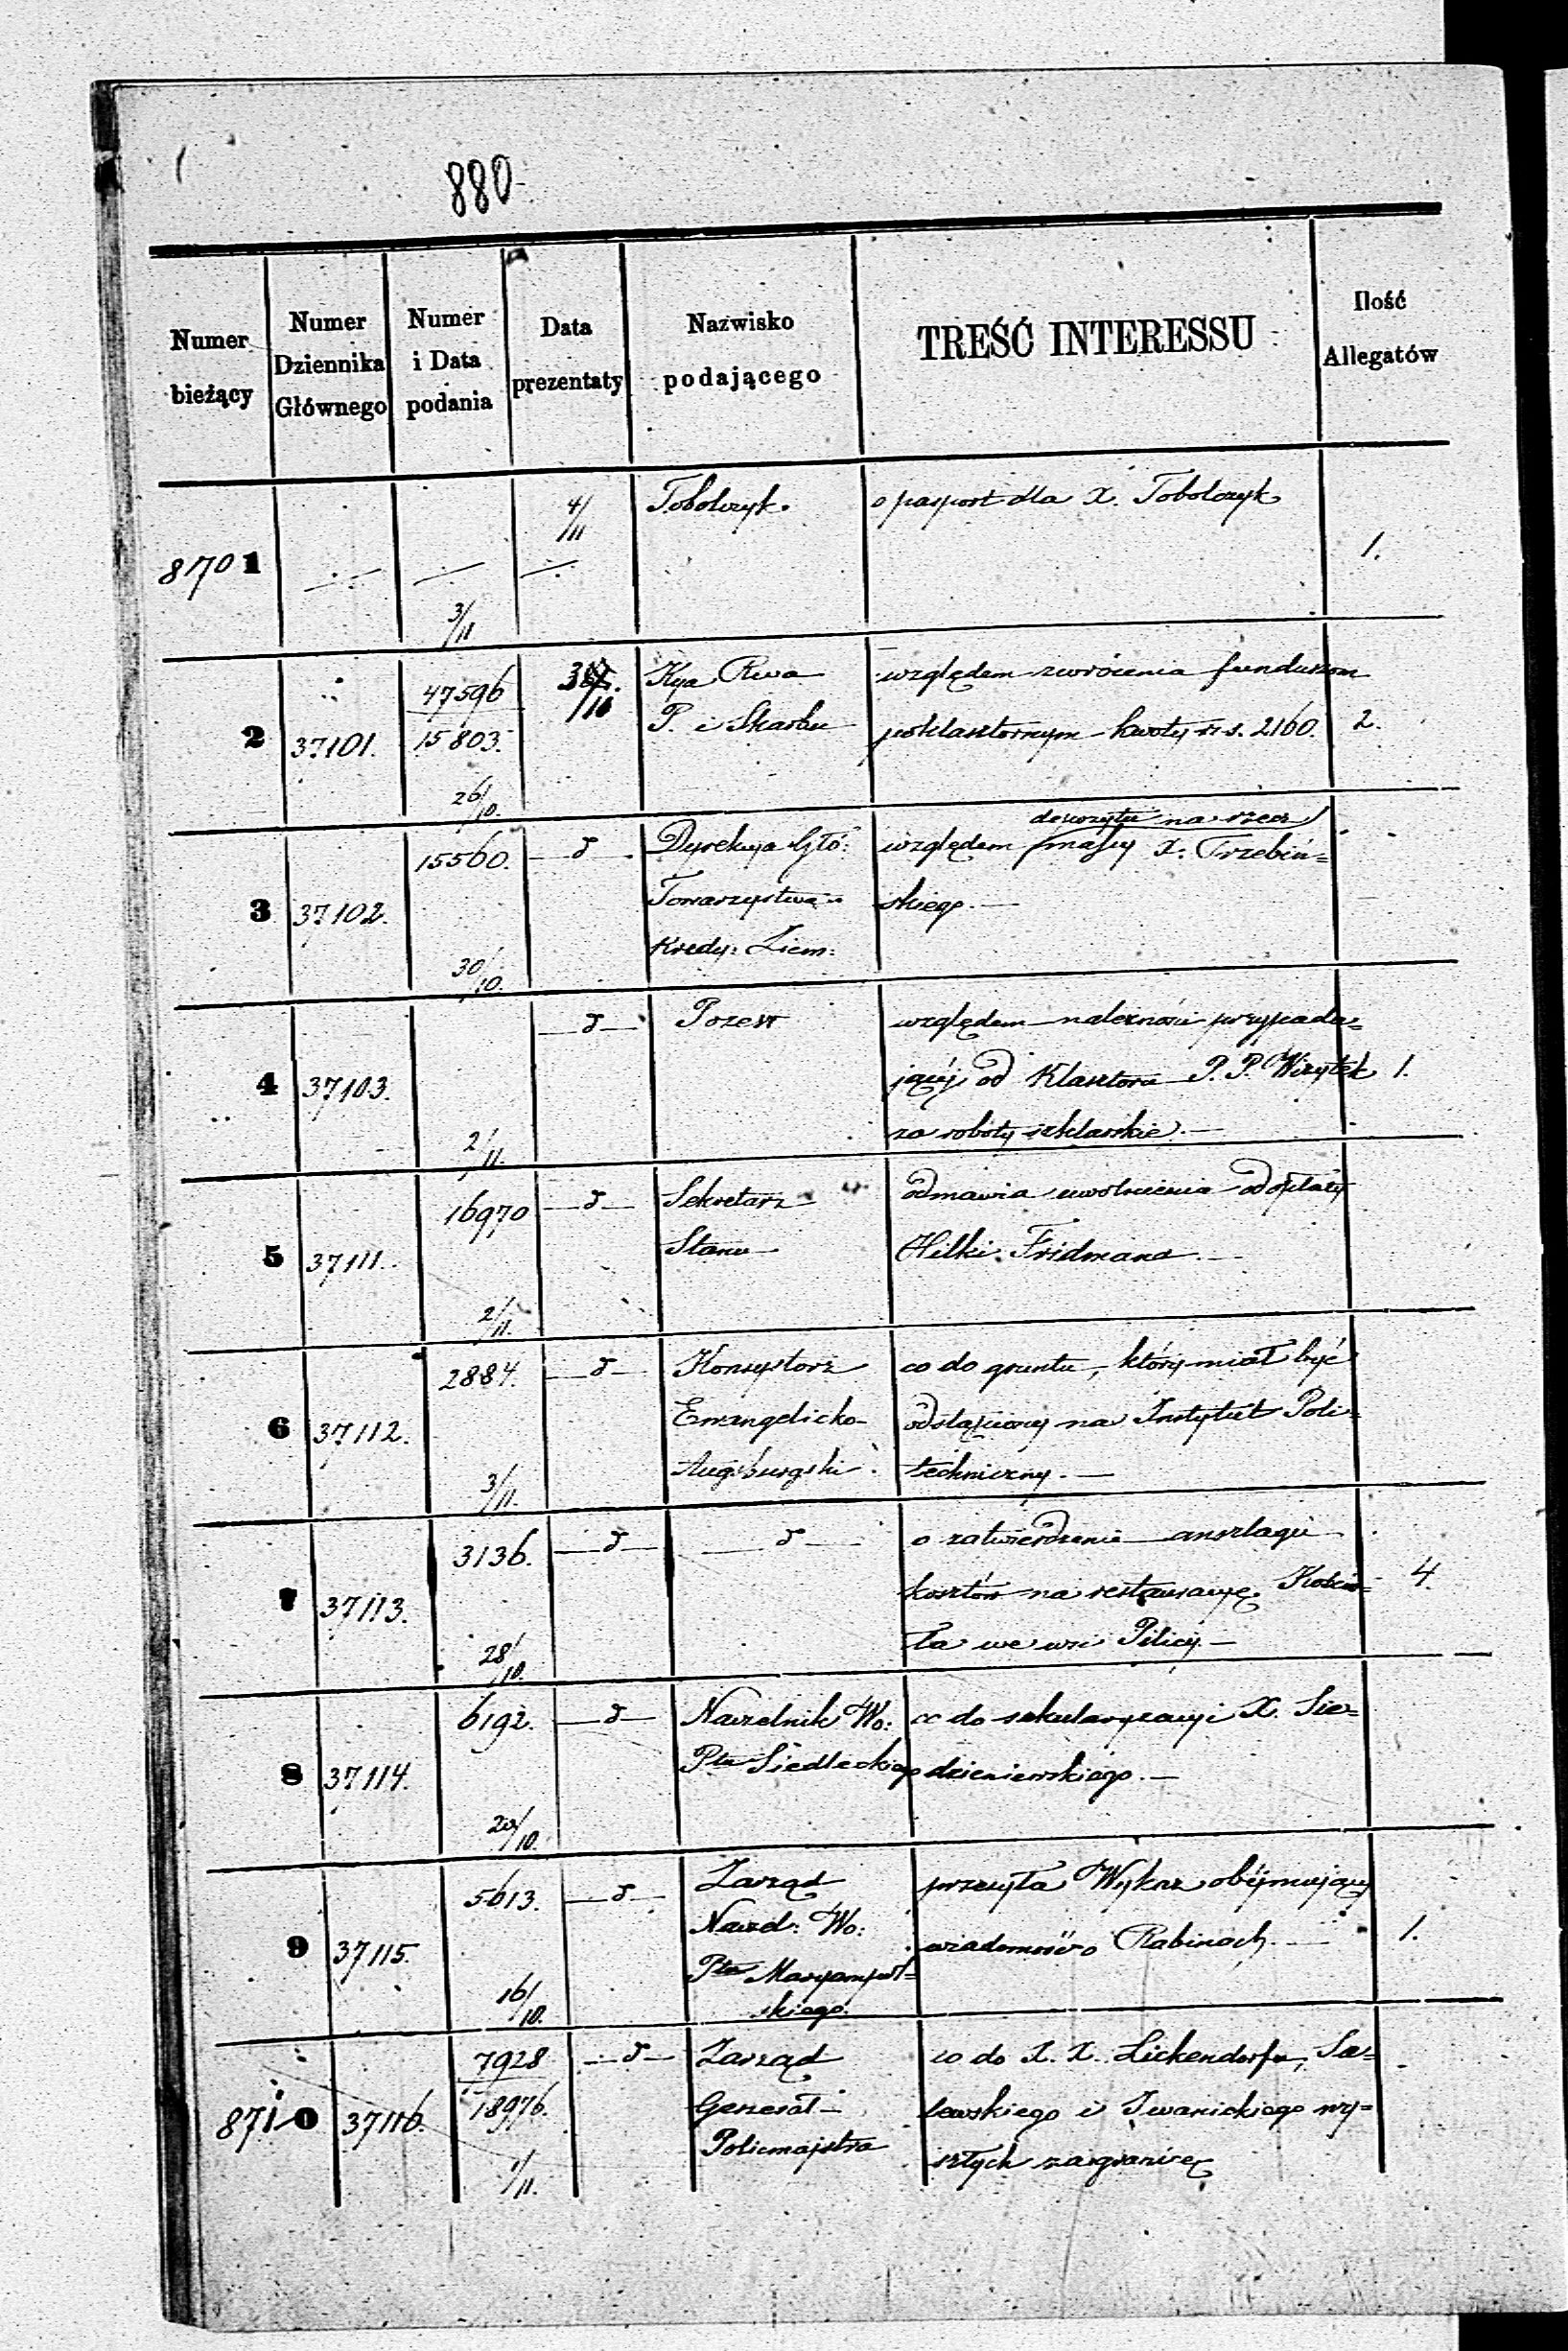 880
Numer bieżący
Numer Dziennika Głównego
Numer i Data podania
Data prezentaty
Nazwisko podającego
TREŚĆ INTERESSU
Ilość Allegatów
8701
4/11
Tobolczyk.
o pasport dla X. Tobolczyk
1.
3/11
2
37101.
47596
15803.
26/10.
Kya Rwa
P. i Skarbu
względem zwrócenia funduszom
poklasztornym kwoty rs. 2160.
2.
3
37102.
15560.
30/10.
d
Dyrekcya Głó:
Towarzystwa
Kredy: Ziem:
depozytu na rzecz
względem massy X. Trzebiń=
skiego.—
4
37103.
2/11.
d
Pozew
względem należności przypada=
jącéj od Klasztoru P. P. Wizytek
za roboty szklarskie.—
1.
5
37111.
16970
2/11.
d
Sekretarz
Stanu
odmawia uwolnienia od opłaty
Hilki Fridmana.—
6
37112.
2884.
3/11.
d
Konsystorz
Ewangelicko-
Augsburgski.
co do gruntu, który miał być
odstąpiony na Instytut Poli=
techniczny.—
7
37113.
3136.
28/10.
d
d
o zatwierdzenie anszlagu
kosztów na restauracyę Kościo=
ła we wsi Pilicy.—
4.
8
37114.
6192.
20/10.
d
Naczelnik Wo:
Ptu Siedleckiego
co do sekularyzacyi X. Sie=
dzieniewskiego.—
9
37115.
5613.
16/10.
d
Zarząd
Nacz: Wo:
Ptu Maryampol=
skiego.
przesyła Wykaz obejmujący
wiadomość o Rabinach.—
1.
8710
37116.
7928
18976.
1/11.
d
Zarząd
Generał-
Policmajstra
co do X. X. Lickendorfa, Sa=
lewskiego i Iwanickiego wy=
szłych zagranicę